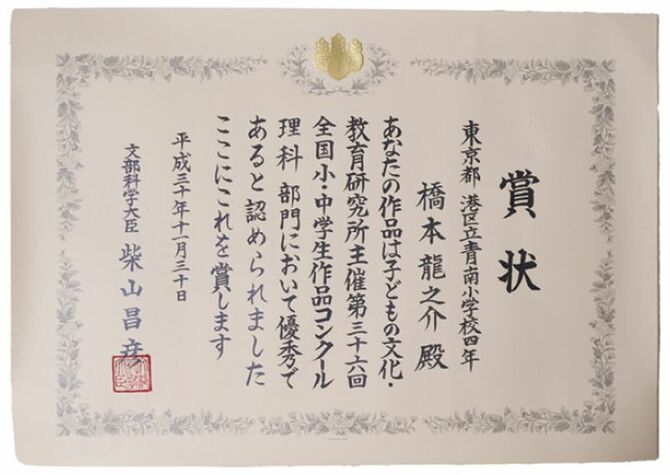 賞状
東京都 港区立青南小学校四年
橋本龍之介 殿
あなたの作品は子どもの文化・
教育研究所主催第三十六回
全国小・中学生作品コンクール
理科 部門において優秀で
あると認められました
ここにこれを賞します
平成三十年十一月三十日
文部科学大臣 柴山昌彦